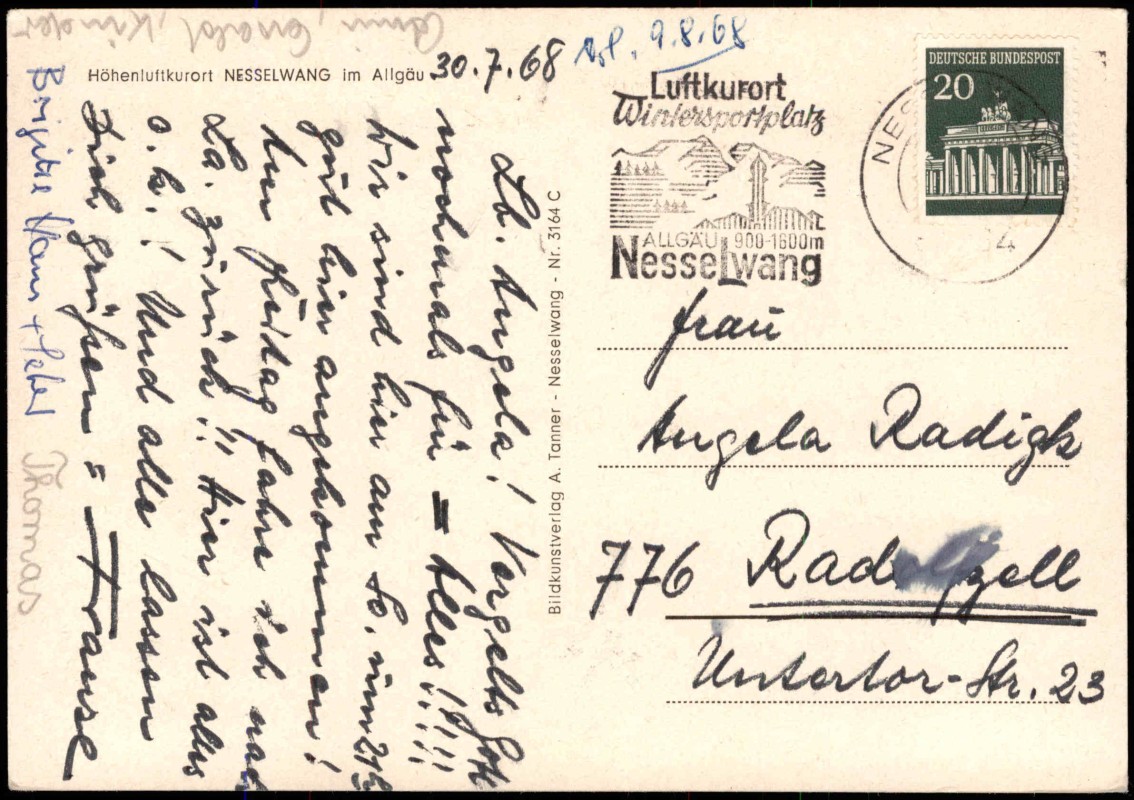 Höhenluftkurort NESSELWANG im Allgäu
30.7.68
Lb. Angela! Vergelts Gott
nochmals für Alles!!!!
Wir sind hier am So. um
gut hier angekommen!
Am Freitag fahre ich nach
La. zurück!! Hier ist alles
o. k.! Und alle lassen
Dich grüßen =
Brigitte
Thomas
Kinder
9.8.68
Bildkunstverlag A. Tanner - Nesselwang - Nr. 3164 C
Luftkurort
Wintersportplatz
ALLGÄU 900-1600m
Nesselwang
DEUTSCHE BUNDESPOST
20
NES
4
Frau
Angela Radigk
776 Radolfzell
Untertor-Str. 23